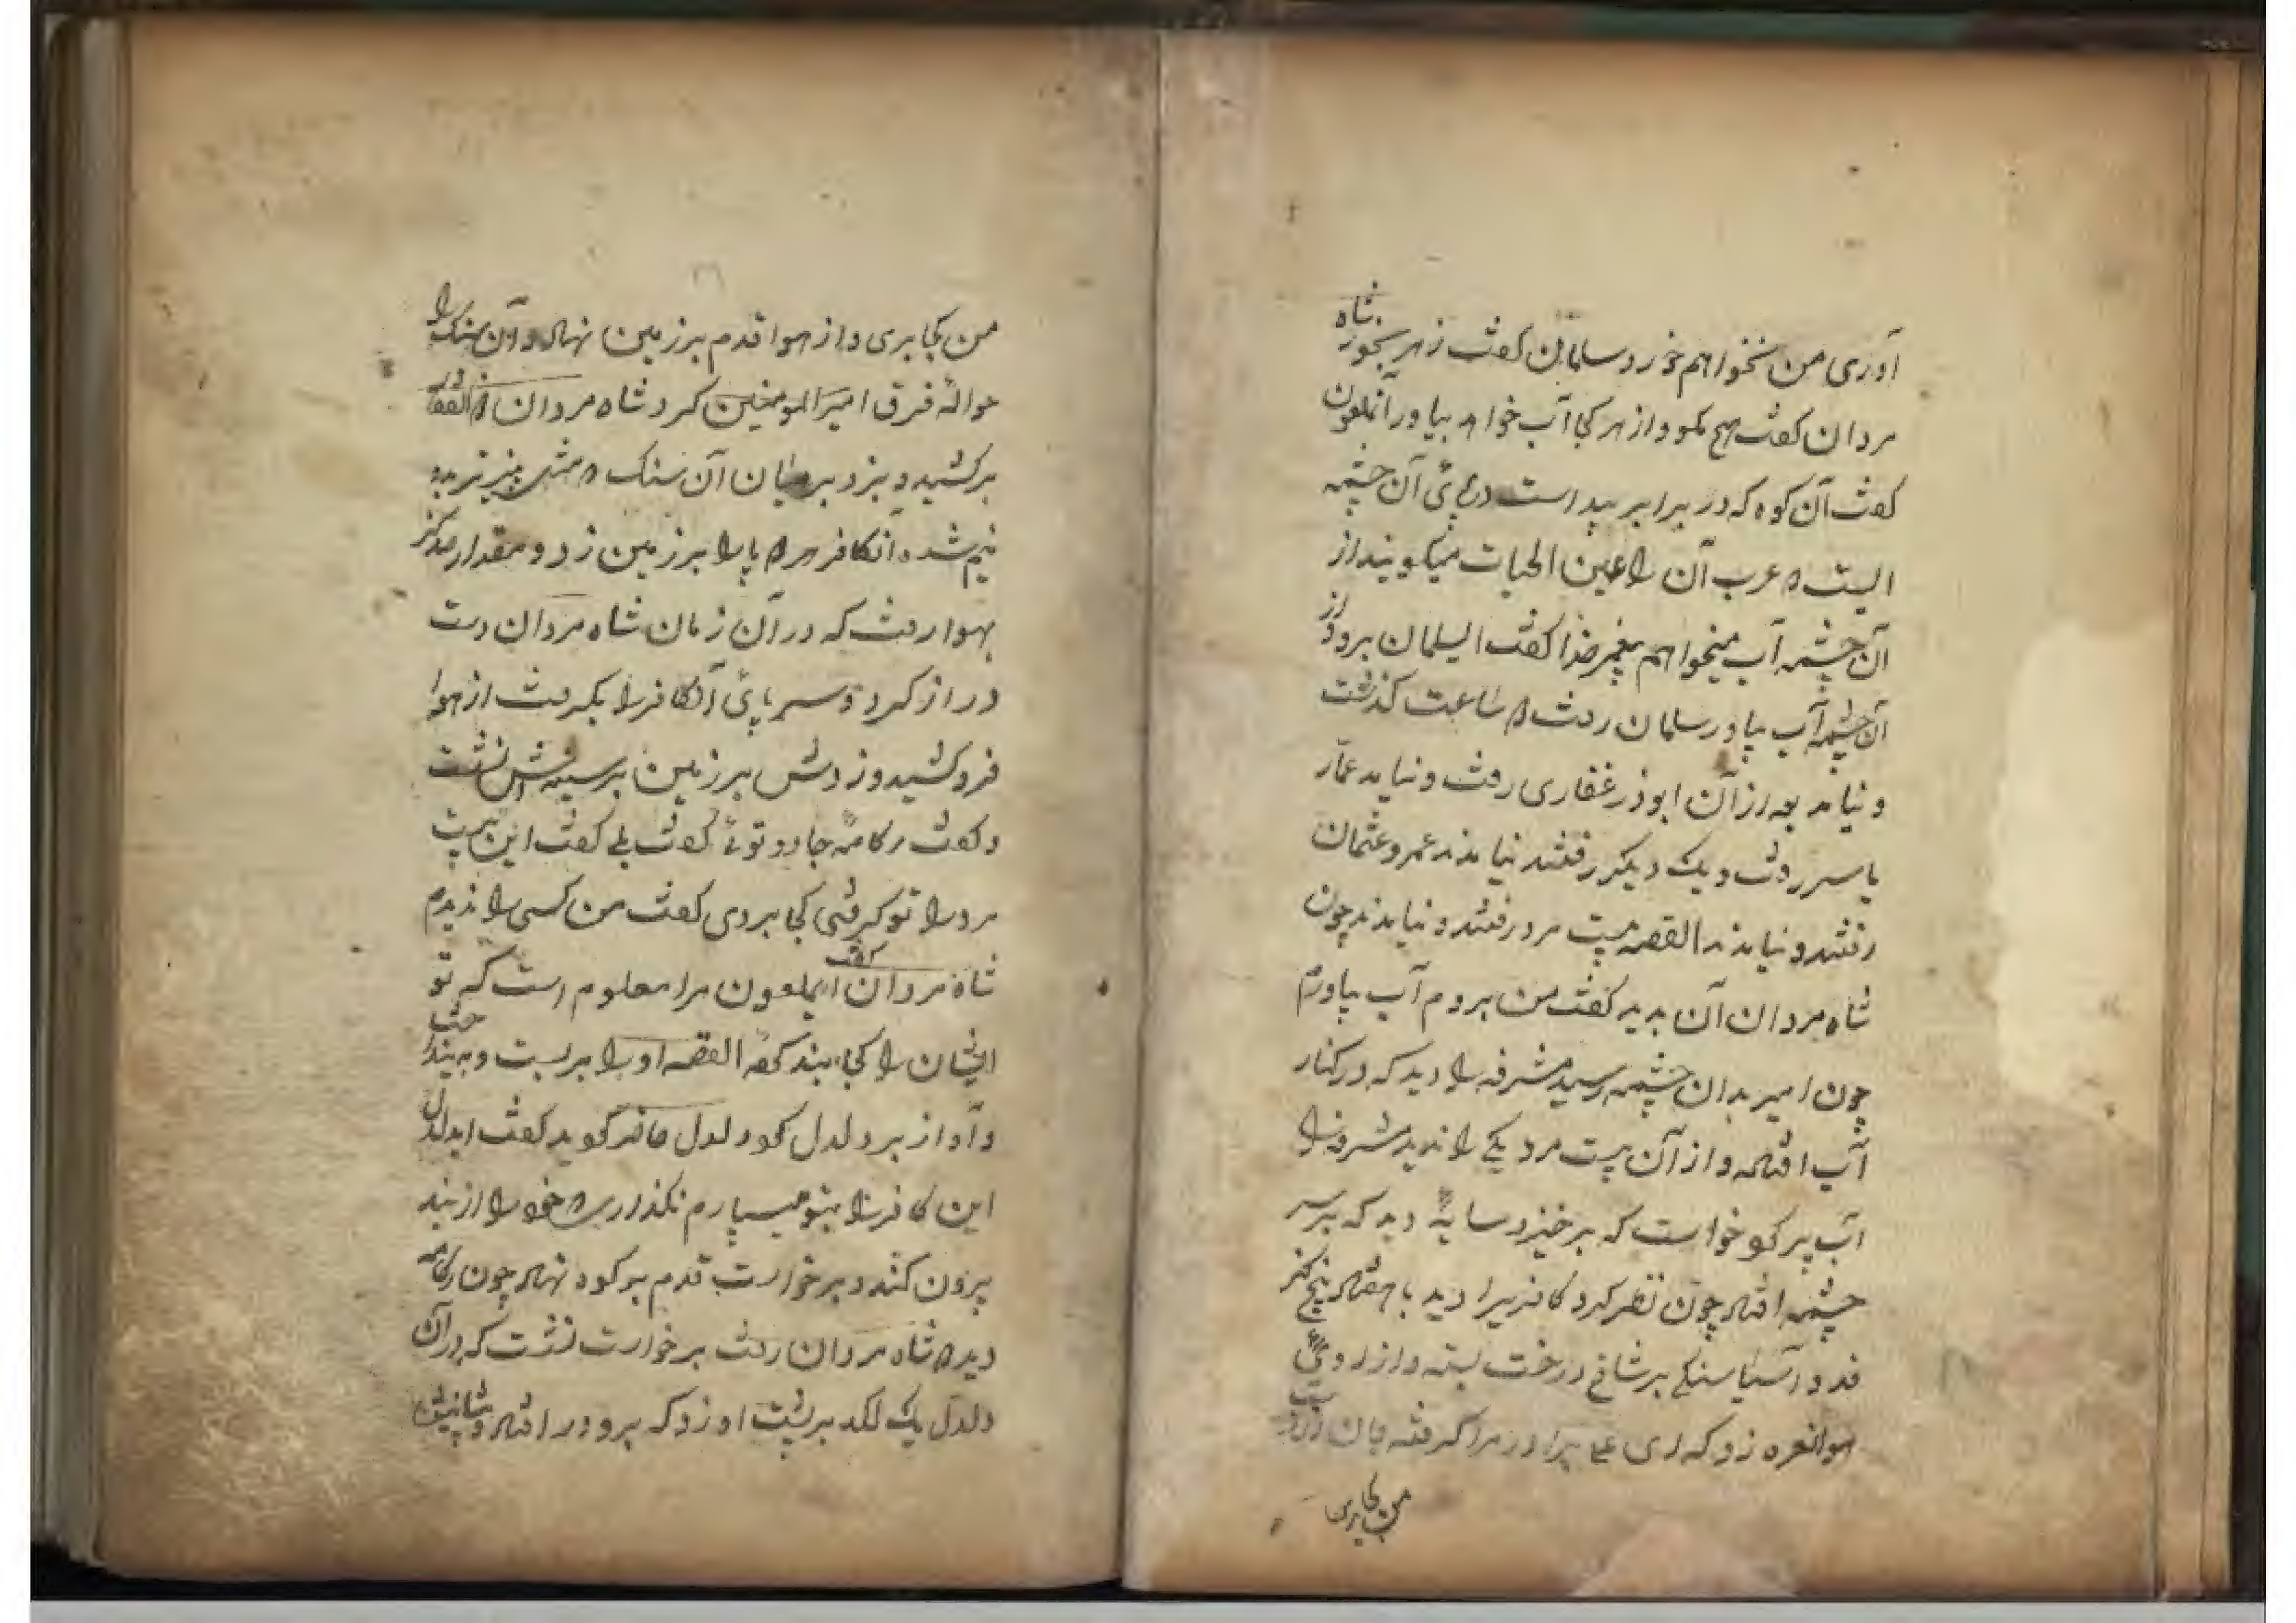 آوری من نخواهم خورد سلمان کفت زهر بخور شاه
مردان کفت هیچ مکو و از هر کجا آب خواهد بیاور آنملعون
کفت آن کوه که در برابر پیداست در پای آن چشمه
ایست که عرب آن را عین الحیات میکویند از
آن چشمه آب میخواهم پیغمبر خدا کفت ایسلمان برو و از
آن چشمه آب بیاور سلمان رفت ساعت کذشت
و نیامد بعد از آن ابوذر غفاری رفت و نیامد عمار
یاسر رفت و یک دیکر رفتند نیامدند عمر و عثمان
رفتند و نیامدند القصه بیست مرد رفتند و نیامدند چون
شاه مردان آن بدید کفت من بروم آب بیاورم
چون امیر بدان چشمه رسید مشرفه را دید که در کنار
آب افتاده و از آن بیست مرد یکی را ندید مشرفه را
آب پر کرد خواست که برخیزد سایهٔ دید که بر سر
چشمه افتاد چون نظر کرد کافریرا دید با هفتاد پنج کز
قد و آسیا سنکی بر شاخ درخت بسته و از روی
هوا نعره زد که ای علی برادر مرا کرفته جان از دست
من کجا بری
من کجا بری و از هوا قدم بر زمین نهاد و آن سنک را
حوالهٔ فرق امیرالمومنین کرد شاه مردان ذوالفقار
برکشید و بزد بر میان آن سنک که مثل پنیر تر بدو
نیم شد و آنکافر هر دو پا را بر زمین زد و مقدار صد کز
بهوا رفت که در آن زمان شاه مردان دست
دراز کرد و سر پای آنکافر را بکرفت از هوا
فرو کشید و زدش بر زمین بر سینه اش نشست
و کفت جادو توئی کفت بلی کفت این بیست
مرد را تو کرفتی کجا بردی کفت من کسی را ندیدم
شاه مردان کفت ایملعون مرا معلوم است که تو
ایشان را کجا بند کردهٔ القصه او را بر بست و به بند
و آواز بر دلدل کرد دلدل حاضر کردید کفت ایدلدل
این کافر را بتو میسپارم نکذاری که خود را از بند
بیرون کند و برخواست قدم بر کوه نهاد چون
دید که شاه مردان رفت برخواست نشست که در آن
دلدل یک لکد بر پشت او زد که برو در افتاد